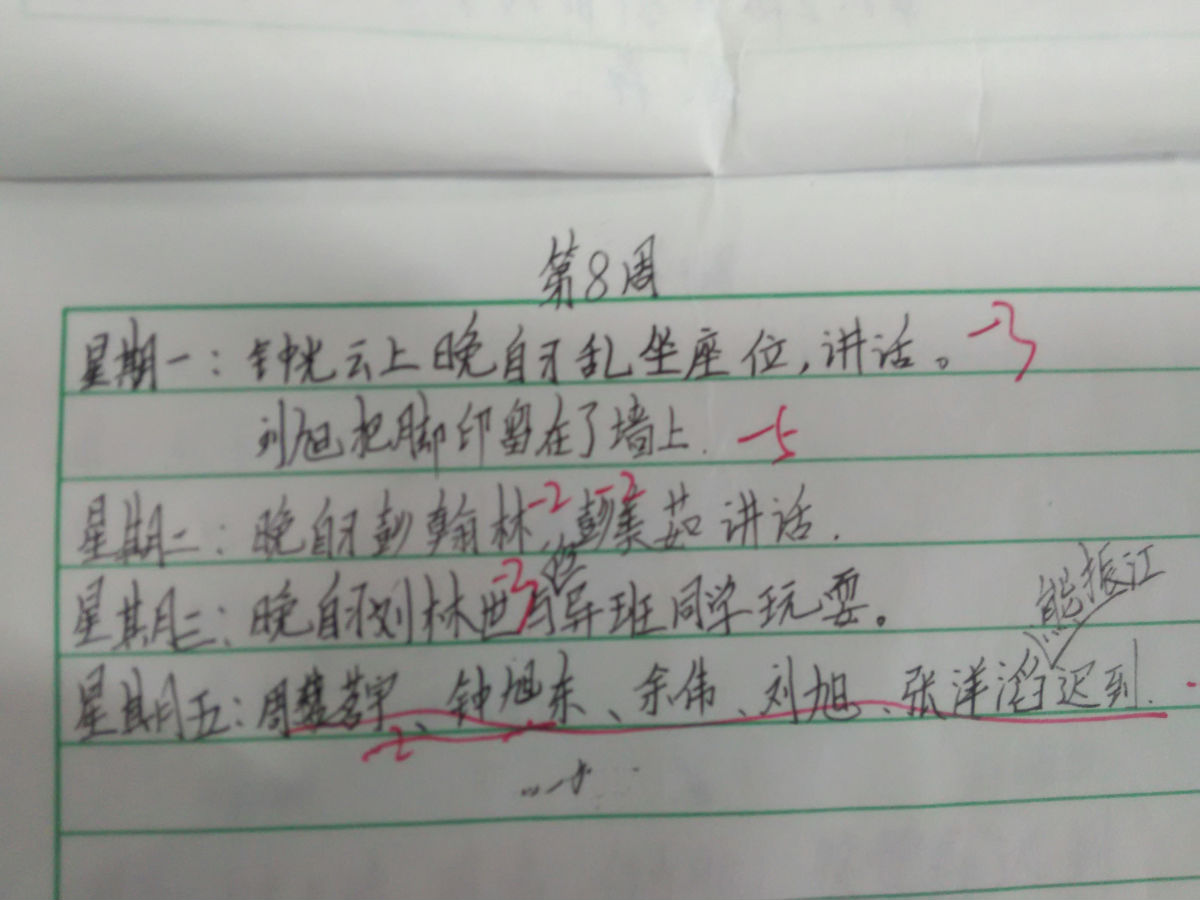 第8周
星期一：钟光云上晚自习乱坐座位，讲话。-3
刘旭把脚印留在了墙上. -5
星期二：晚自习彭翰林-2、彭美茹-2讲话.
星期三：晚自习刘林世-3与异班同学玩耍。
熊振江
星期五：周楚茗宇、钟旭东、余伟、刘旭、张洋滔迟到.
-2